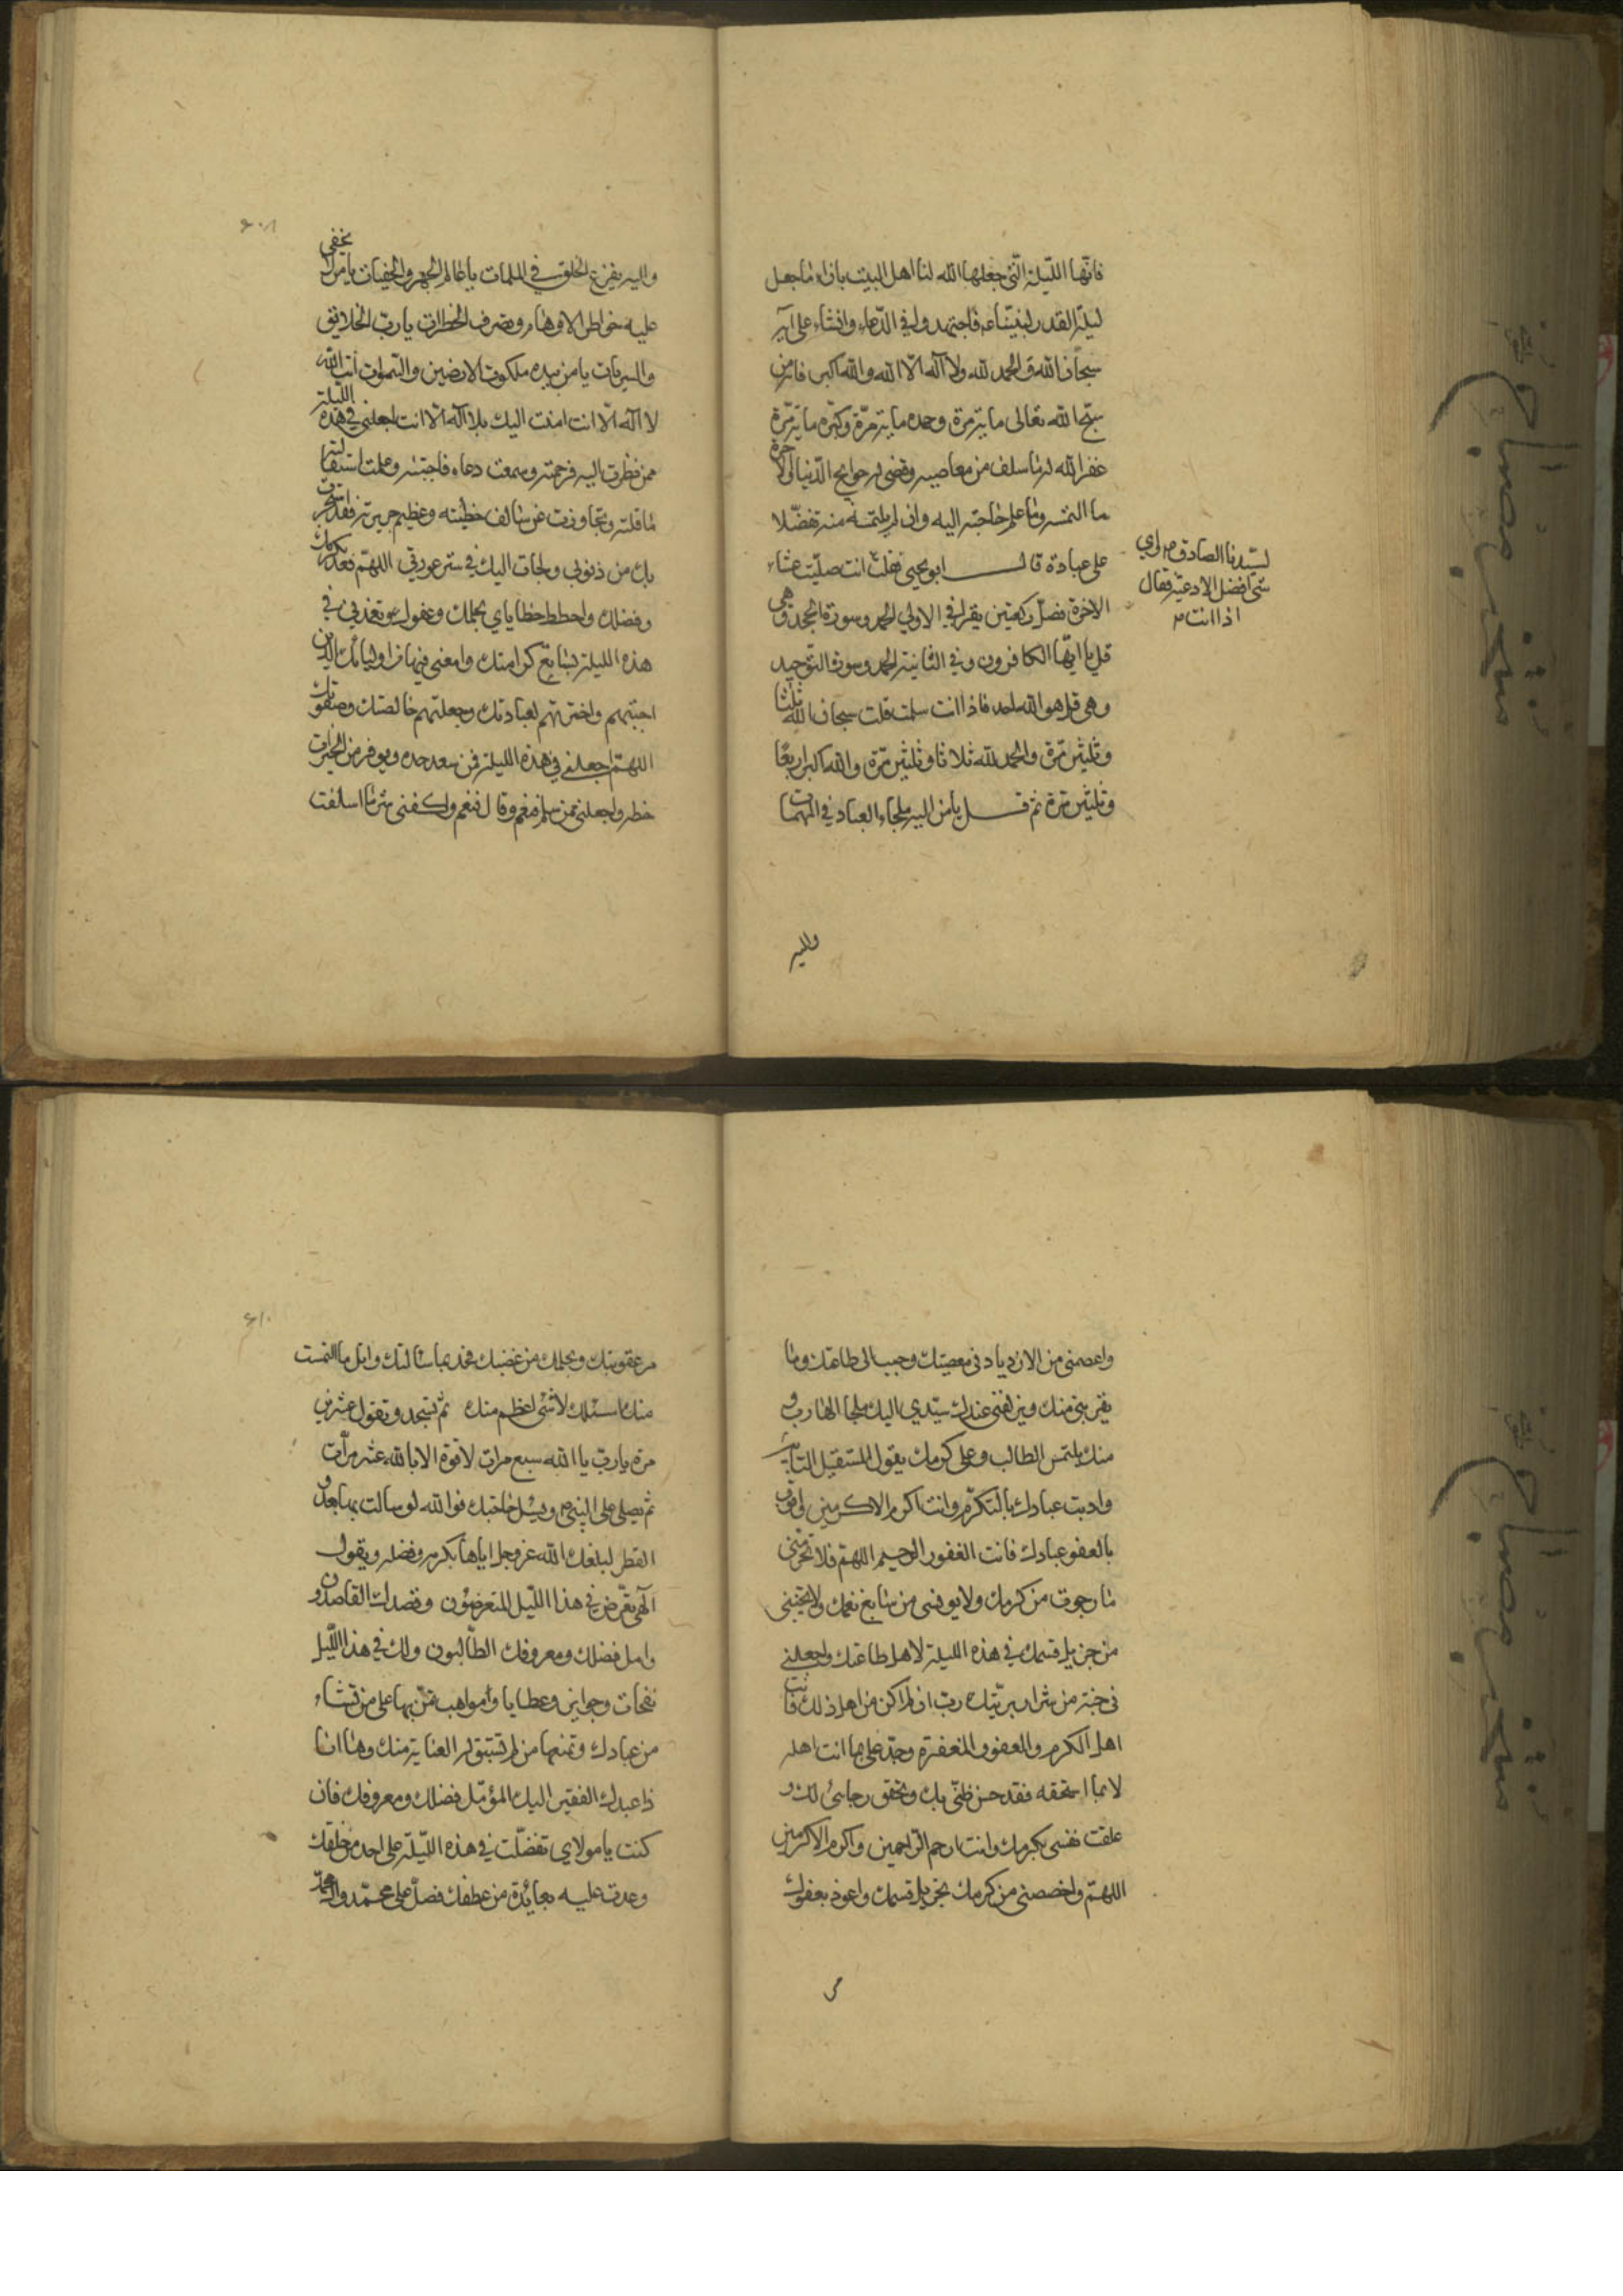 فانّها اللّيلة الّتي جعلها الله لنا اهل البيت بازاء ما جعل
ليلة القدر لنبيّنا ع فاجتهدوا في الدّعاء والثناء على
سبحان الله والحمد لله ولا آله الّا الله والله اكبر فانه من
سبّح الله تعالى مأية مرة وحمده مأية مرّة وكبّره مأية مرّة
غفر الله له ما سلف من معاصيه وقضى له حوايج الدّنيا والاخرة
ما التمسه وما علم حاجته اليه وان لم يلتمسه منه تفضّلا
على عباده قال ابو يحيى فقلت
لسيّدنا الصادق ع اي
شئ افضل الادعية فقال
اذا انت
انت صلّيت عشاء
الاخرة فصلّ ركعتين يقرا في الاولي الحمد وسورة الجحد وهي
قل يا ايّها الكافرون وفي الثانية الحمد وسورة التّوحيد
وهي قل هو الله احد فاذا انت سلمت قلت سبحان الله ثلثا
وثلثين مرّة والحمد لله ثلاثا وثلثين مرّة والله اكبر اربعًا
وثلثين مرة ثم قل يا من اليه ملجاء العباد في المهمات
واليه
۶۰۸
واليه يفزع الخلق في الملمات يا عالم الجهر والخفيات يا من لا يخفى
عليه خواطر الاوهام وتصرف الخطرات يا ربّ الخلايق
والبريات يا من بيده ملكوت الارضين والسّموات انت الله
لا اله الّا انت امت اليك بلا آله الّا انت اجعلني في هذه الليلة
ممن نظرت اليه فرحمته وسمعت دعاءه فاجبته وعلمت استقالته
فاقلته وتجاوزت عن سالف خطيئته وعظيم جريرته فقد استجرت
بك من ذنوبي ولجات اليك في ستر عيوبي اللهمّ فعد بكرمك
وفضلك واحطط خطاياي بحلمك وعفوك وتغمدني في
هذه الليلة بسابغ كرامتك واجعلني فيها من اوليائك الذين
اجتبيتهم واخترتهم لعبادتك وجعلتهم خالصتك وصفوتك
اللهمّ اجعلني في هذه الليلة ممن سعد جده وتوفر من الخيرات
حظه واجعلني ممن سلم فنعم وفاز فغنم واكفني شر ما اسلفت
واعصمني من الازدياد في معصيتك وحبب الى طاعتك وما
يقربني منك ويزلفني عندك سيّدي اليك ملجأ الهارب و
منك يلتمس الطالب وعلى كرمك يعول المستقيل التايب
وادبت عبادك بالتكرّم وانت اكرم الاكرمين وامرت
بالعفو عبادك فانت الغفور الرحيم اللهمّ فلا تحرمني
ما رجوت من كرمك ولا يويسني من سابغ نعمك ولا تخيبني
من جزيل قسمك في هذه الليلة لاهل طاعتك واجعلني
في جنة من شرار بريّتك ربّ ان لم اكن من اهل ذلك فانت
اهل الكرم والعفو والمغفرة وجد علي بما انت اهله
لا بما استحقه فقد حسن ظنّي بك وتحقق رجائي لك و
علقت نفسي بكرمك وانت ارحم الرّاحمين واكرم الاكرمين
اللهمّ واخصصني من كرمك بجزيل قسمك واعوذ بعفوك
من
۶۱۰
من عقوبتك وبحلمك من غضبك فجد بما سالتك وانل ما التمست
منك اسئلك لا شئ اعظم منك ثم تسجد وتقول عشرين
مرة يا ربّ يا الله سبع مرات لا قوة الا بالله عشر مرّات
ثم يصلي على النبي ص ويسئل حاجتك فوالله لو سالت بها بعدد
القطر لبلغك الله عز وجل اياها بكرمه وفضله ويقول
آلهي تعّرض في هذا اللّيل المتعرضون وقصدك القاصدون
وامل فضلك ومعروفك الطّالبون ولك في هذا اللّيل
نفحات وجوايز وعطايا ومواهب تمنّ بها على من تشاء
من عبادك وتمنعها من لم تسبق له العناية منك وها انا
ذا عبدك الفقير اليك المؤمّل فضلك ومعروفك فان
كنت يا مولاي تفضّلت في هذه اللّيلة على احد من خلقك
وعدت عليه بعايدة من عطفك فصلّ على محمّد وال محمّد